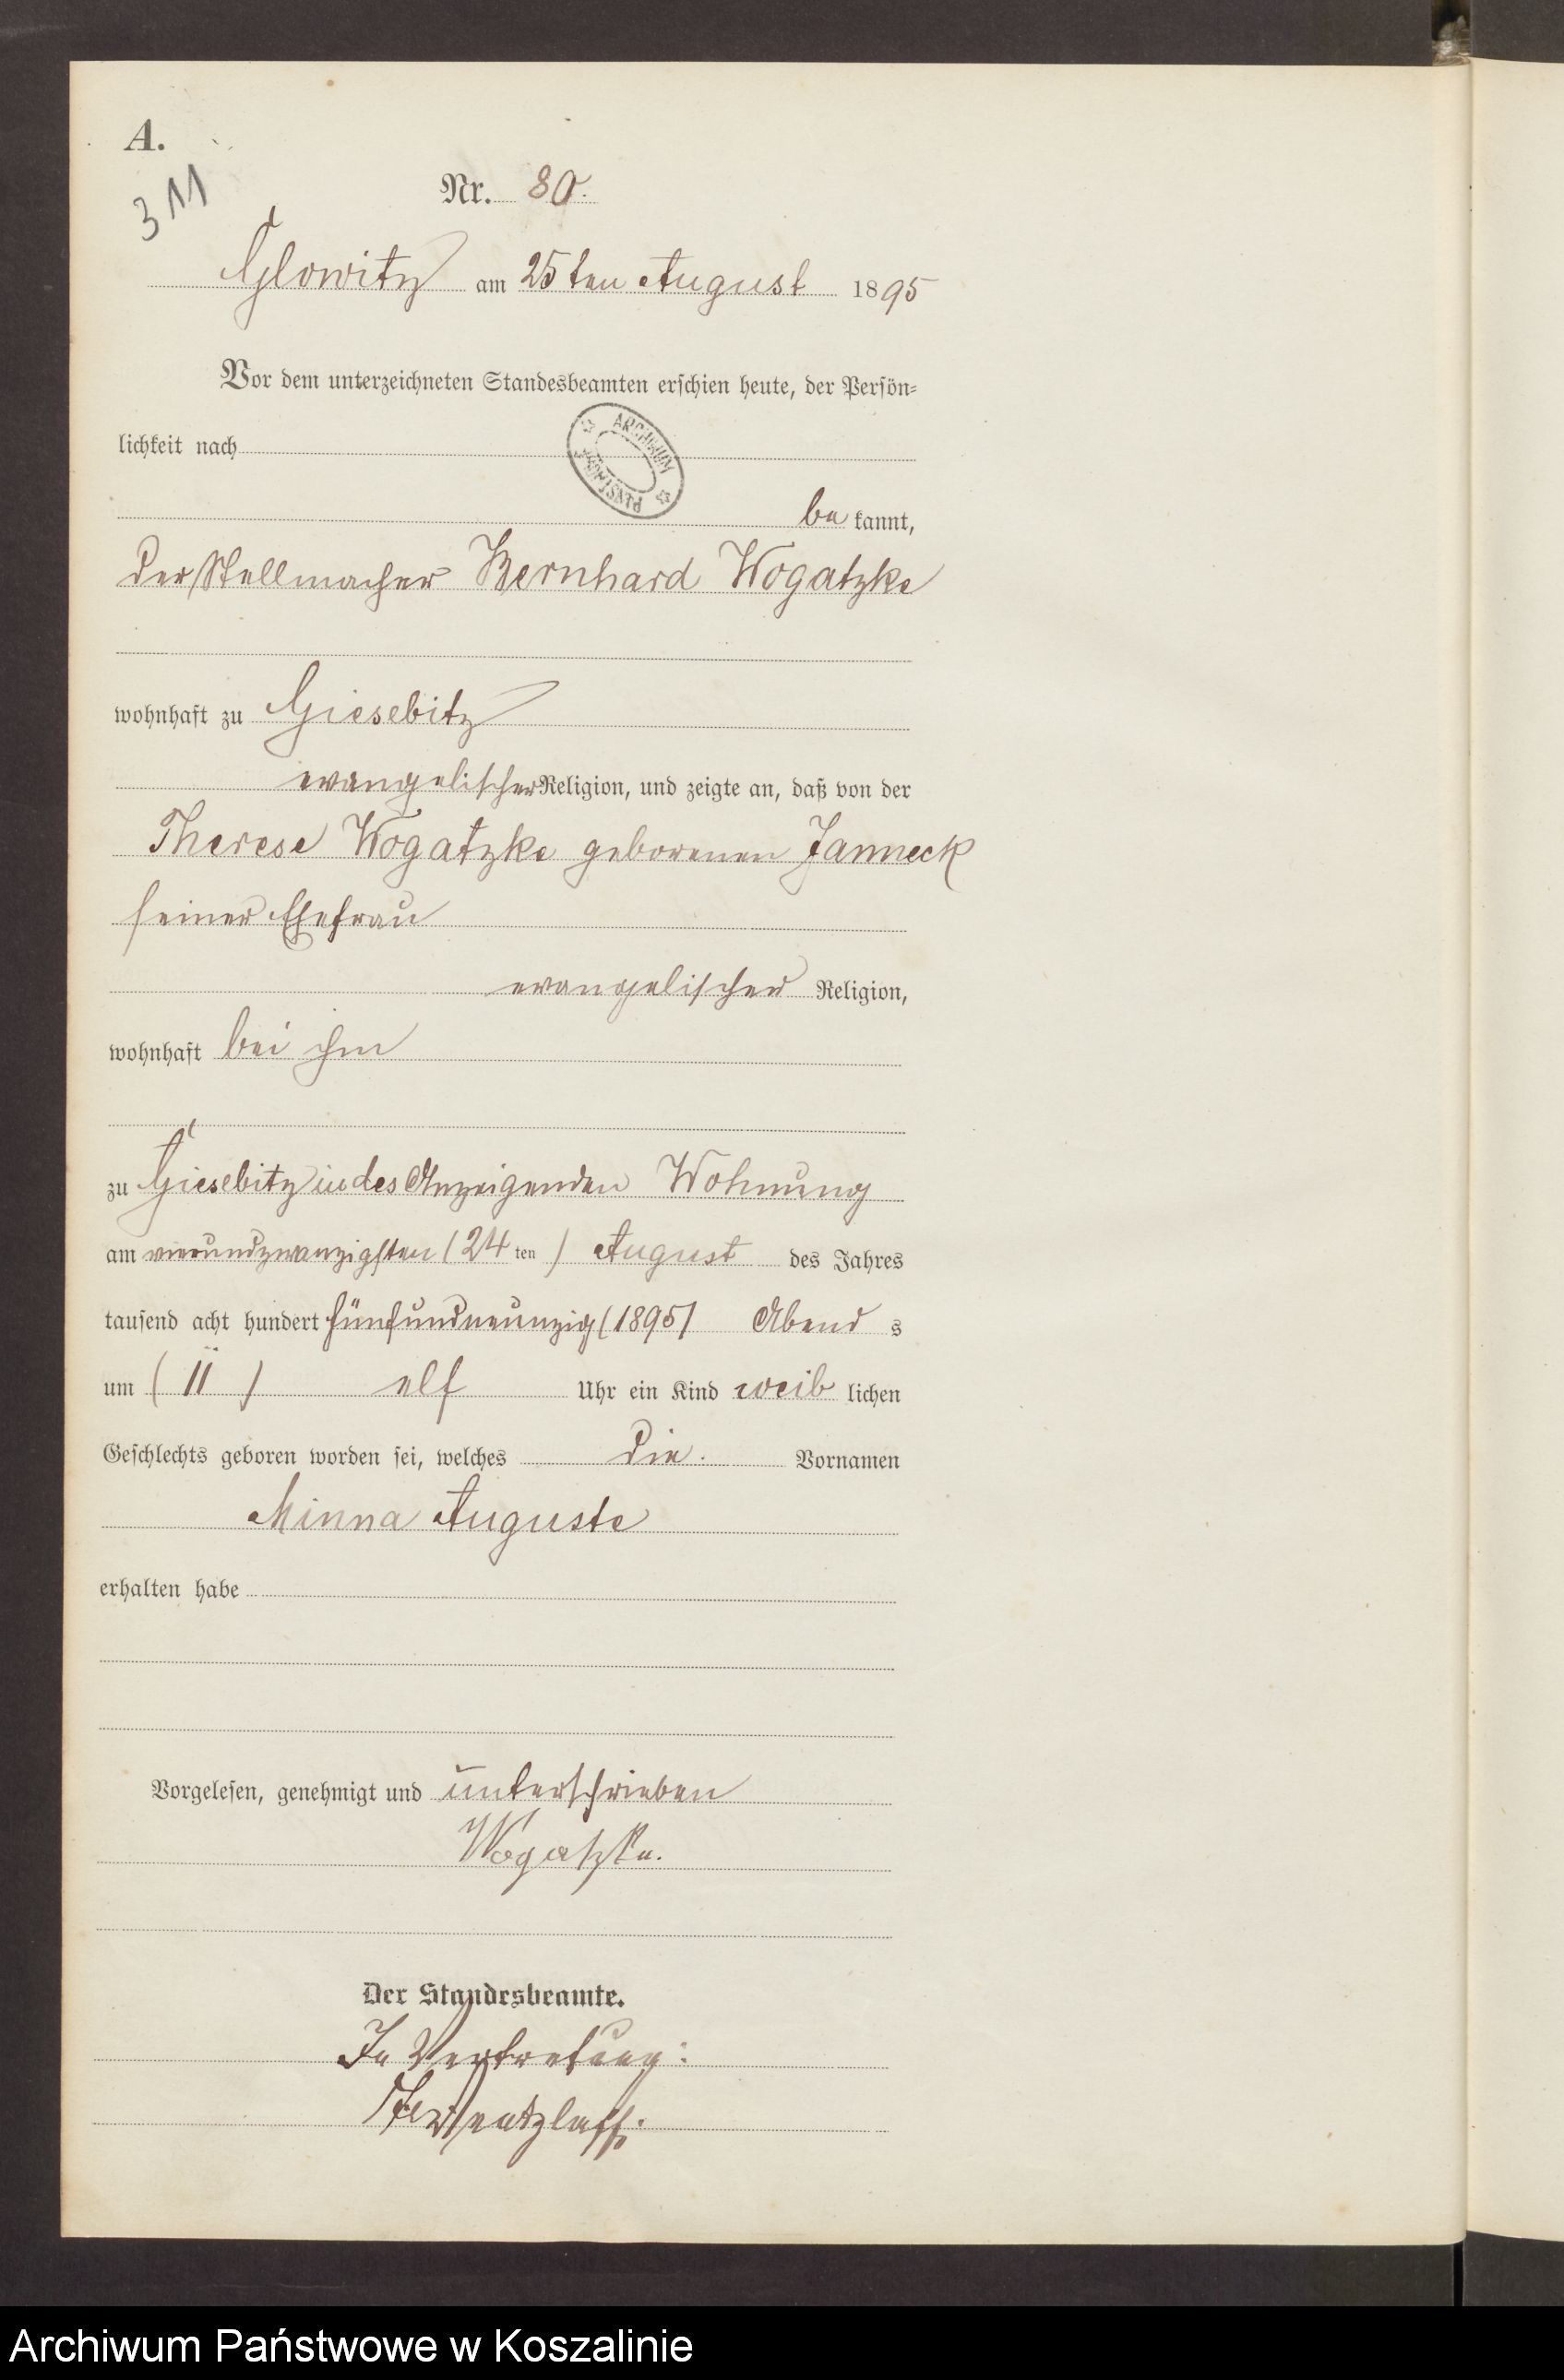 A.
311
Nr. 80.
Glowitz am 25ten August 1895
Vor dem unterzeichneten Standesbeamten erschien heute, der Persön-
lichkeit nach
ARCHIWUM
PAŃSTWOWE
be kannt,
der Stellmacher Bernhard Wogatzke
wohnhaft zu Giesebitz
evangelischer Religion, und zeigte an, daß von der
Therese Wogatzke geborenen Janneck
seiner Ehefrau
evangelischer Religion,
wohnhaft bei ihm
zu Giesebitz in des Anzeigenden Wohnung
am vierundzwanzigsten (24 ten) August des Jahres
tausend acht hundert fünfundneunzig (1895) Abend s
um (11) elf Uhr ein Kind weib lichen
Geschlechts geboren worden sei, welches die Vornamen
Minna Auguste
erhalten habe
Vorgelesen, genehmigt und unterschrieben
Wogatzke.
Der Standesbeamte.
In Vertretung:
Archiwum Państwowe w Koszalinie